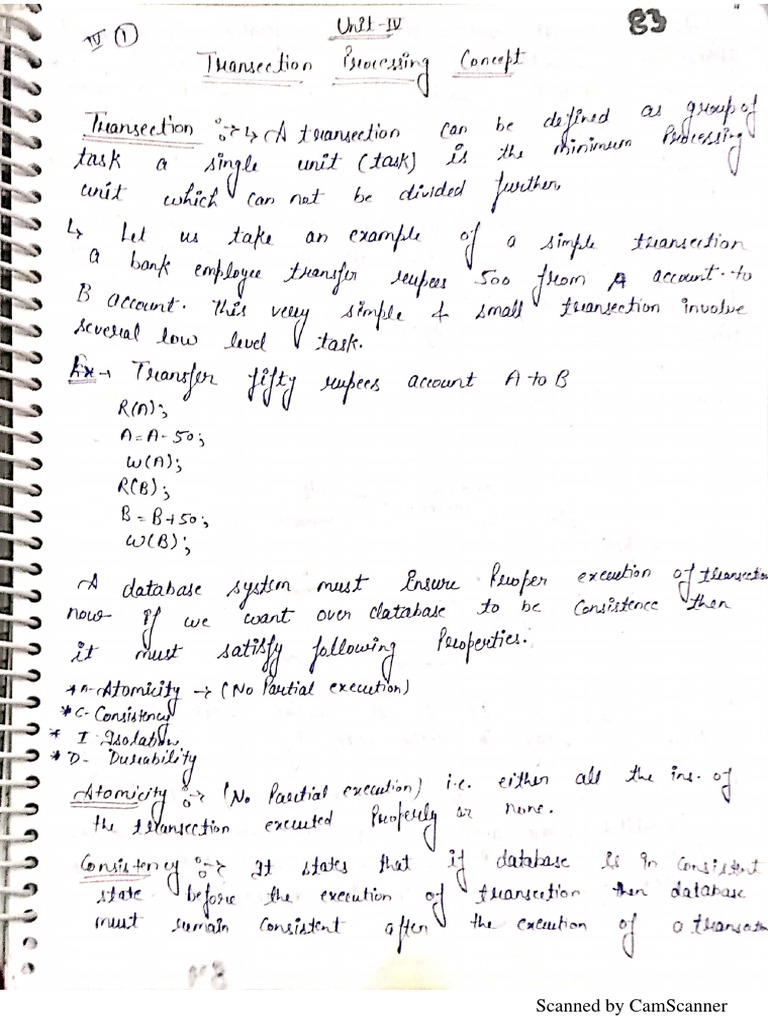 Unit-IV
83
IV (1)
Transection Processing Concept
Transection :-> ↳ A transection can be defined as group of
task a single unit (task) is the minimum Processing
unit which can not be divided further.
↳ Let us take an example of a simple transection
a bank employee transfer rupees 500 from A account to
B account. This very simple & small transection involve
several low level task.
Ex → Transfer fifty rupees account A to B
R(A);
A=A-50;
W(A);
R(B);
B=B+50;
W(B);
A database system must Ensure Proper execution of transection
now if we want over database to be Consistence then
it must satisfy following Properties.
* A-Atomicity → (No Partial execution)
* C-Consistency
* I Isolation
* D- Durability
Atomicity :-> (No Partial execution) i.e. either all the ins. of
the transection executed Properly or none.
Consistency :-> It states that if database is in consistent
state before the execution of transection then database
must remain consistent after the execution of a transectn
Scanned by CamScanner